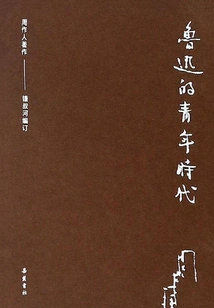 鲁迅的青年時代
周作人著作——锺叔河编订
岳麓书社